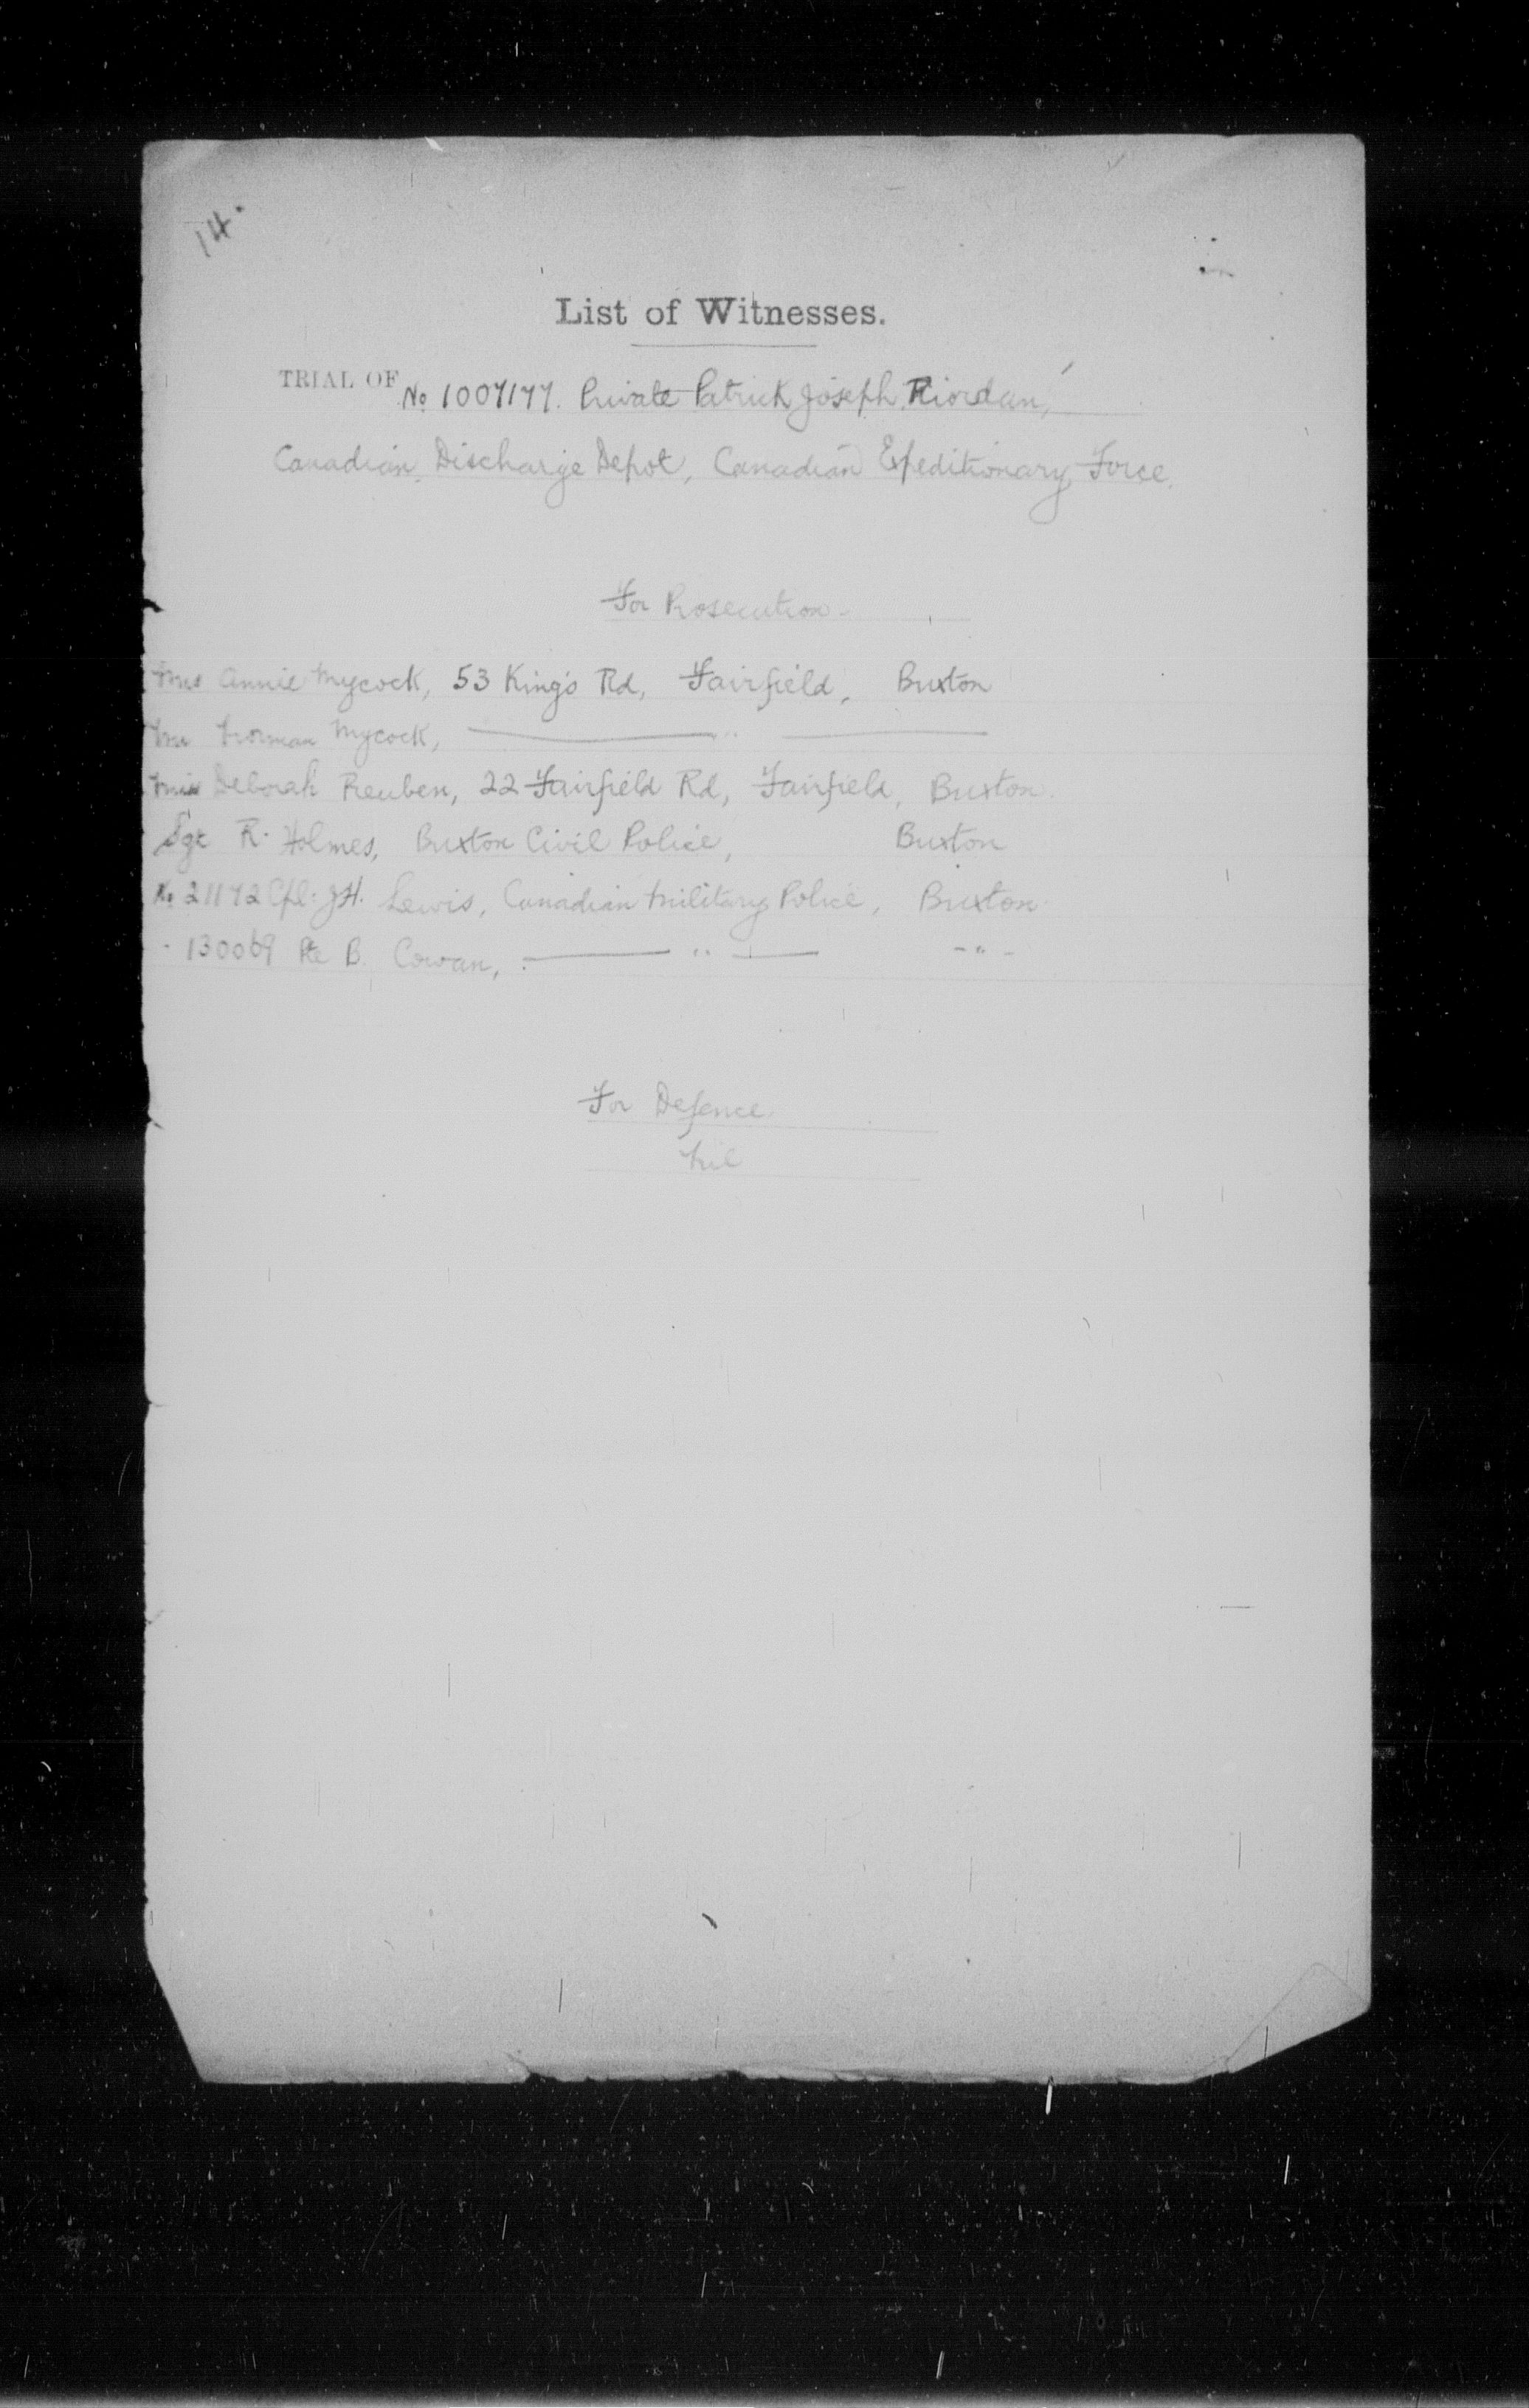 14.
List of Witnesses.
TRIAL OF No 1007177. Private Patrick Joseph Riordan,
Canadian Discharge Depot, Canadian Expeditionary Force.
For Prosecution.
Mrs Annie Mycock, 53 King's Rd, Fairfield, Buxton
Mr Norman Mycock, ——— " ———
Miss Deborah Reuben, 22 Fairfield Rd, Fairfield, Buxton.
Sgt R. Holmes, Buxton Civil Police, Buxton
No 21172 Cpl. J.H. Lewis, Canadian Military Police, Buxton.
" 130069 Pte B. Cowan, ——— " ——— - " -
For Defence.
Nil